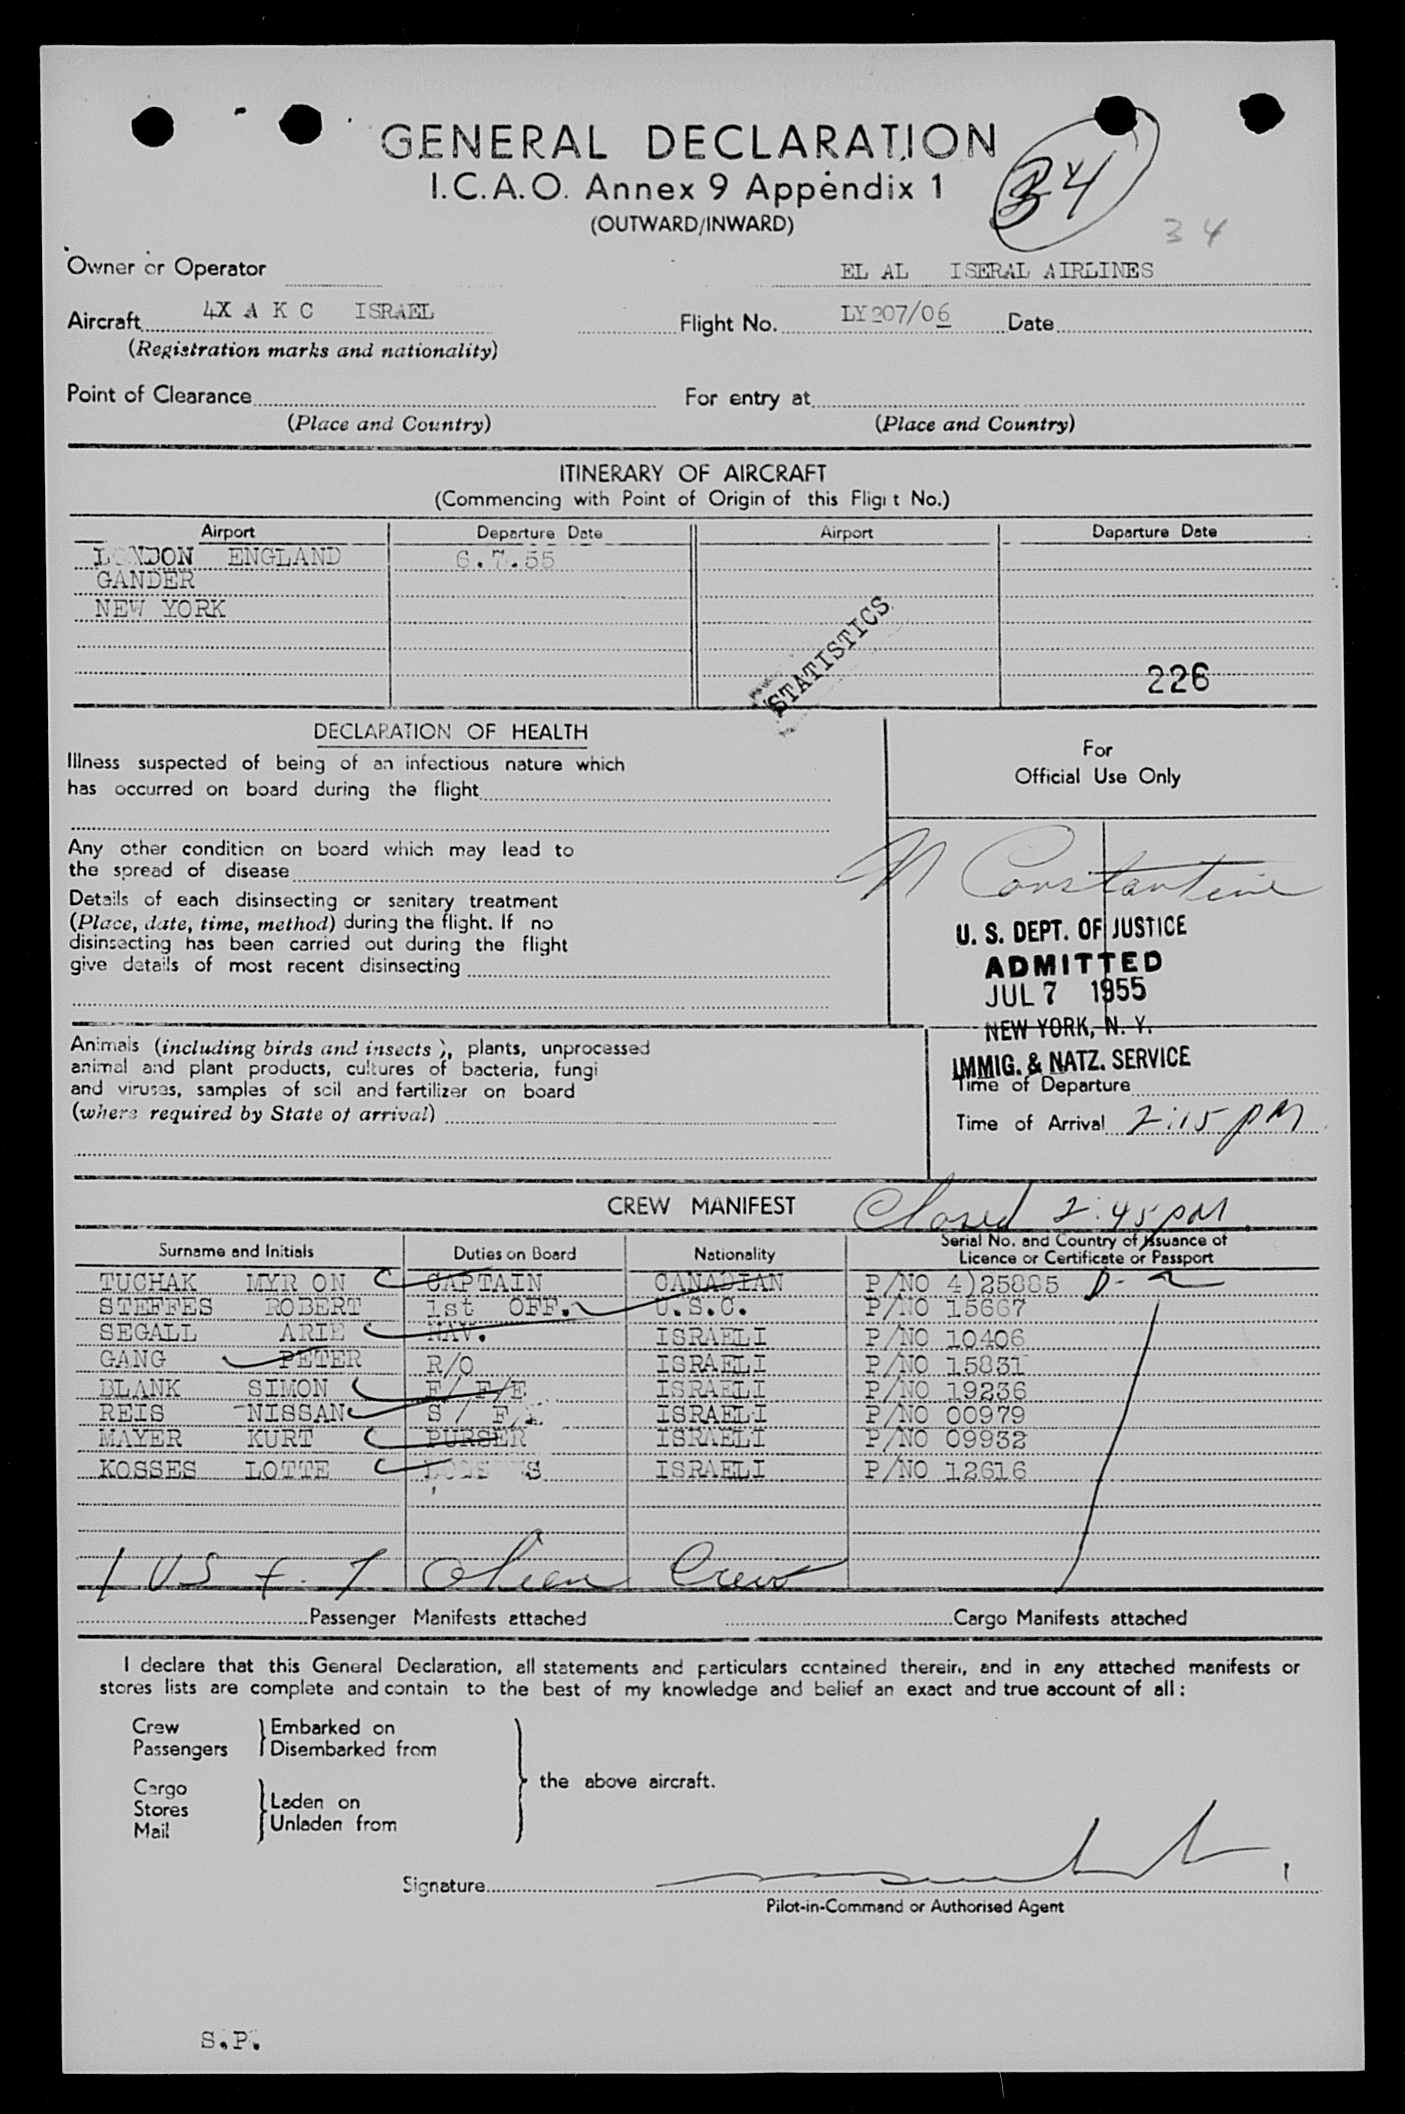 GENERAL DECLARATION
I.C.A.O. Annex 9 Appendix 1
(OUTWARD/INWARD)
34
34
Owner or Operator EL AL ISERAL AIRLINES
Aircraft 4X A K C ISRAEL Flight No. LY207/06 Date
(Registration marks and nationality)
Point of Clearance For entry at
(Place and Country) (Place and Country)
ITINERARY OF AIRCRAFT
(Commencing with Point of Origin of this Flight No.)
Airport Departure Date Airport Departure Date
LONDON ENGLAND 6.7.55
GANDER
NEW YORK
STATISTICS
226
DECLARATION OF HEALTH
For
Official Use Only
Illness suspected of being of an infectious nature which
has occurred on board during the flight
Any other condition on board which may lead to
the spread of disease
N Constantine
Details of each disinsecting or sanitary treatment
(Place, date, time, method) during the flight. If no
disinsecting has been carried out during the flight
give details of most recent disinsecting
U. S. DEPT. OF JUSTICE
ADMITTED
JUL 7 1955
NEW YORK, N. Y.
IMMIG. & NATZ. SERVICE
Animals (including birds and insects), plants, unprocessed
animal and plant products, cultures of bacteria, fungi
and viruses, samples of soil and fertilizer on board
(where required by State of arrival)
Time of Departure
Time of Arrival 2:15 PM
CREW MANIFEST Closed 2:45 PM
Surname and Initials Duties on Board Nationality Serial No. and Country of Issuance of
Licence or Certificate or Passport
TUCHAK MYRON CAPTAIN CANADIAN P/NO 4)25885 D-2
STEFFES ROBERT 1st OFF. U.S.C. P/NO 15667
SEGALL ARIE NAV. ISRAELI P/NO 10406
GANG PETER R/O ISRAELI P/NO 15831
BLANK SIMON F/ F/E ISRAELI P/NO 19236
REIS NISSAN S / F/ ISRAELI P/NO 00979
MAYER KURT PURSER ISRAELI P/NO 09932
KOSSES LOTTE ISRAELI P/NO 12616
1 US + 7 Alien Crew
Passenger Manifests attached Cargo Manifests attached
I declare that this General Declaration, all statements and particulars contained therein, and in any attached manifests or
stores lists are complete and contain to the best of my knowledge and belief an exact and true account of all:
Crew Embarked on
Passengers Disembarked from
the above aircraft.
Cargo
Stores Laden on
Mail Unladen from
Signature
Pilot-in-Command or Authorised Agent
S.P.